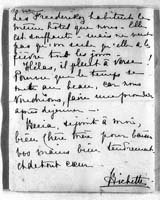 les Fredericks habitent le
même hôtel que nous. Elle
est souffrante; mais ne veut
pas qu'on sache qu'elle a la
fièvre tous les jours
Hélas, il pleut à verse!
Pourvu que le temps se
mette au beau, car nous
voudrions, faire une promenade
après déjeuner
se joint à moi,
bien chère pour baiser
vos mains bien tendrement
et de tout cœur